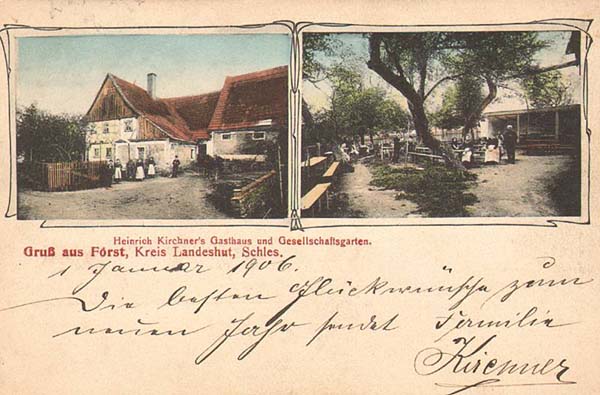 Heinrich Kirchner's Gasthaus und Gesellschaftsgarten.
Gruß aus Forst, Kreis Landeshut, Schles.
1 Januar 1906.
Die besten Glückwünsche zum
neuen Jahr sendet Familie
Kirchner